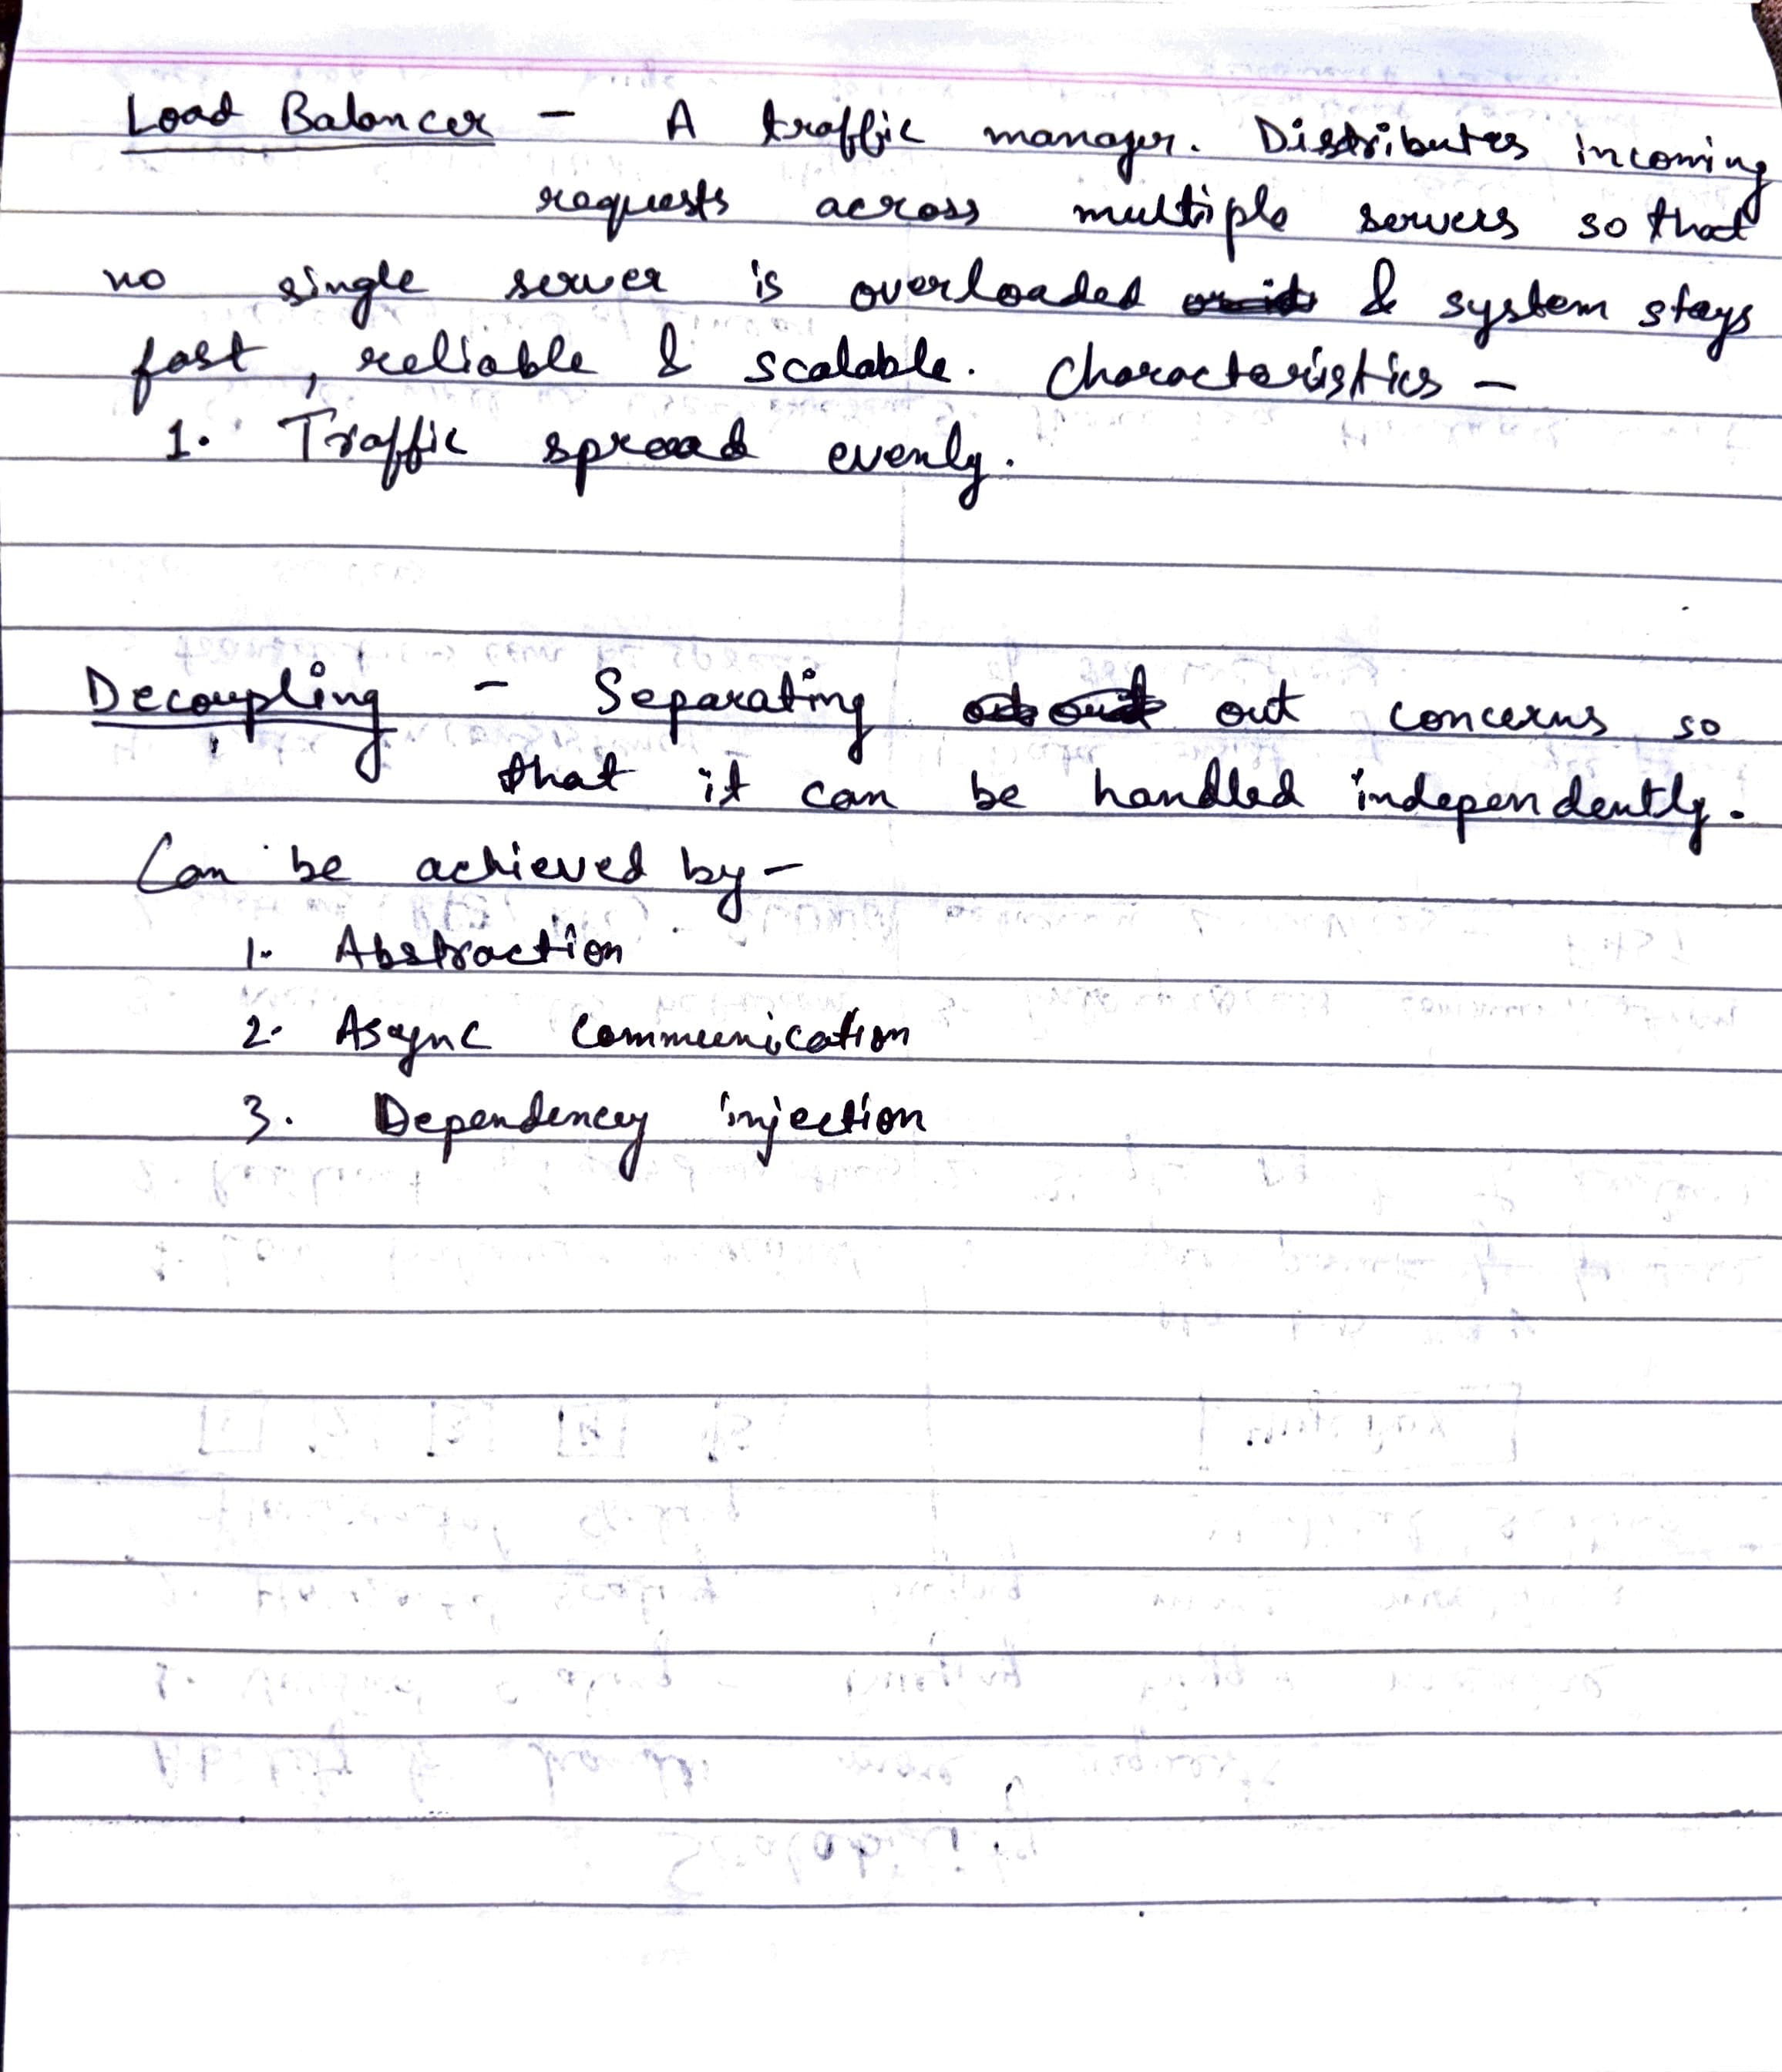 Load Balancer - A traffic manager. Distributes incoming
requests across multiple servers so that
no single server is overloaded & system stays
fast, reliable & scalable. Characteristics -
1. Traffic spread evenly.
Decoupling - Separating out concerns so
that it can be handled independently.
Can be achieved by-
1. Abstraction
2. Async Communication
3. Dependency injection